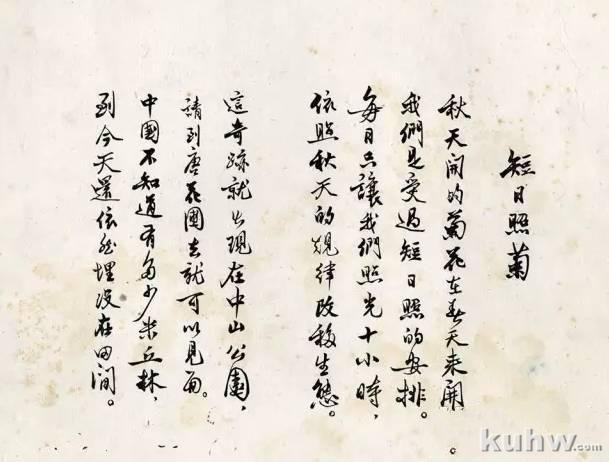 短日照菊
秋天開的菊花在春天來開。
我們是受過短日照的安排。
每日只讓我們照光十小時，
依照秋天的規律改移生態。
這奇跡就出現在中山公園，
請到唐花圃去就可以見面。
中國不知道有多少米丘林，
到今天還依然埋沒在田間。
kuhw.com